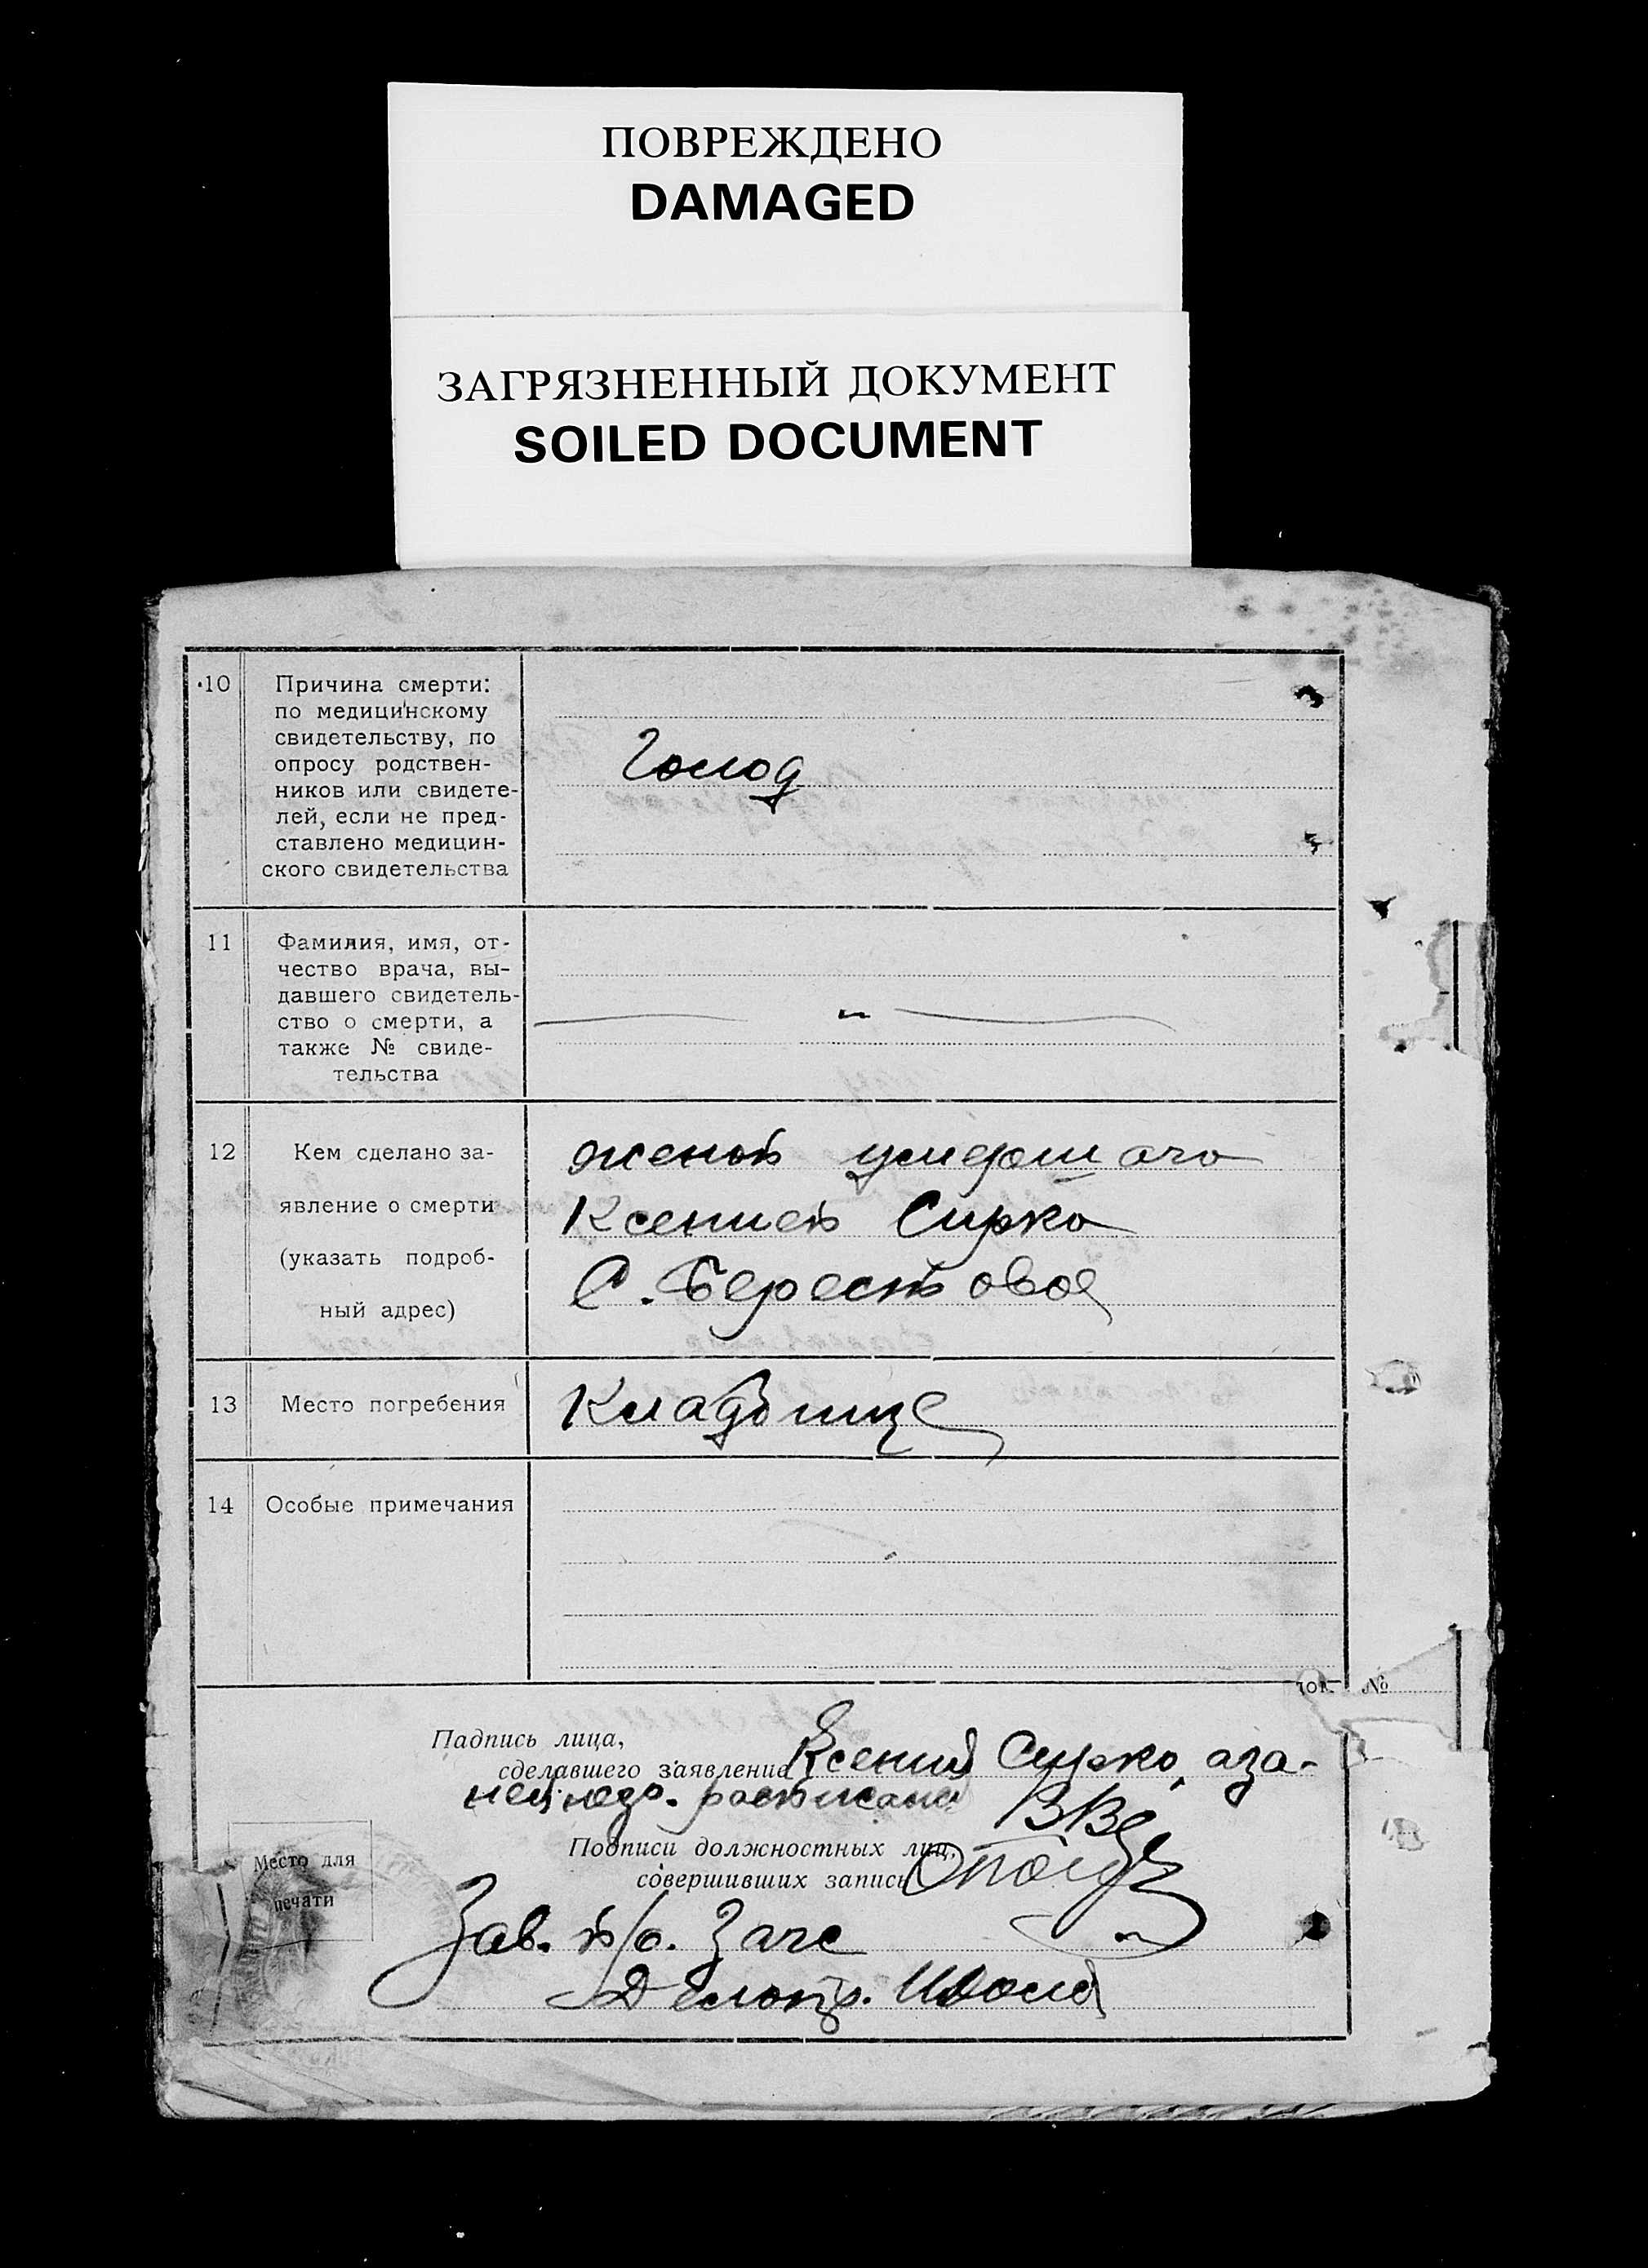 ПОВРЕЖДЕНО
DAMAGED
ЗАГРЯЗНЕННЫЙ ДОКУМЕНТ
SOILED DOCUMENT
10 Причина смерти:
по медицинскому
свидетельству, по
опросу родствен-
ников или свидете-
лей, если не пред-
ставлено медицин-
ского свидетельства
Голод
11 Фамилия, имя, от-
чество врача, вы-
давшего свидетель-
ство о смерти, а
также № свиде-
тельства
— " —
12 Кем сделано за-
явление о смерти
(указать подроб-
ный адрес)
женой умершаго
Ксенией Сирко
С. Берестовое
13 Место погребения
Кладбище
14 Особые примечания
№
Падпись лица,
сделавшего заявление Ксения Сирко, аза
Подписи должностных лиц,
совершивших запись
Место для
печати
Зав. п/о. Загс
Делопр.